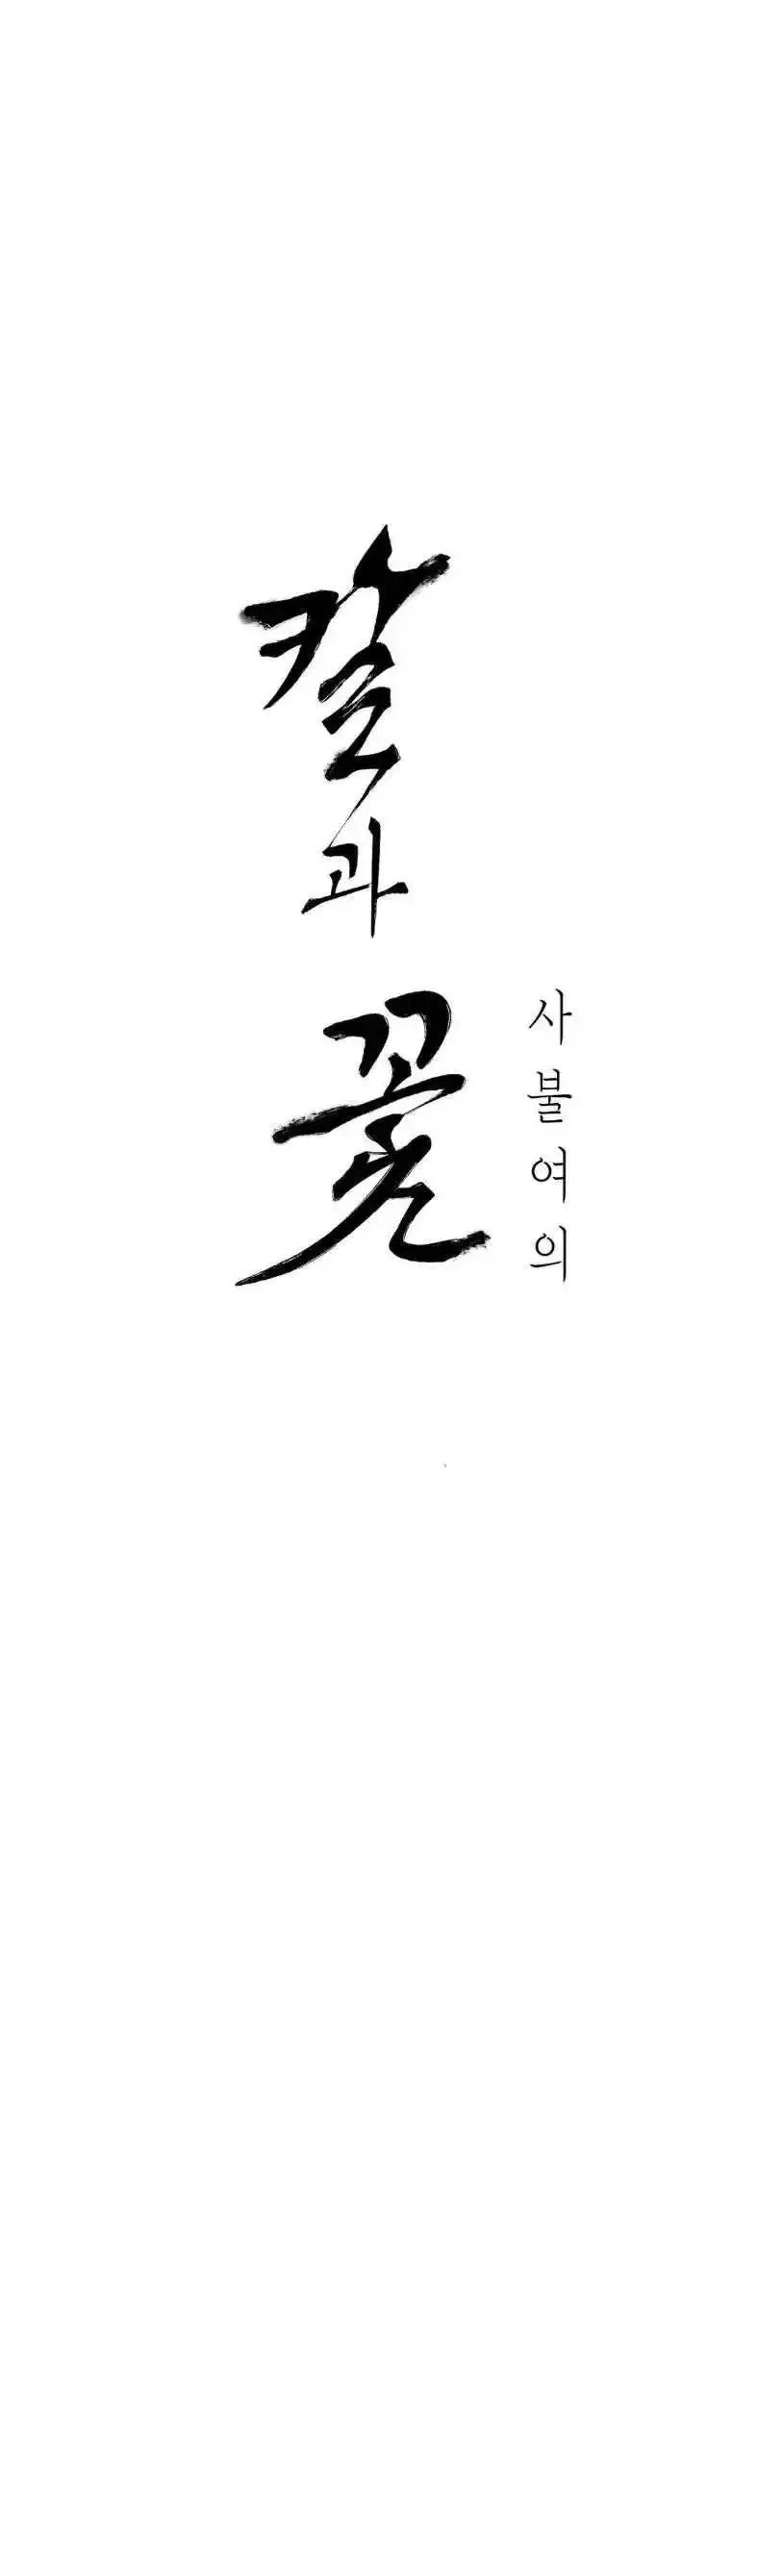 칼과꽃
사불여의